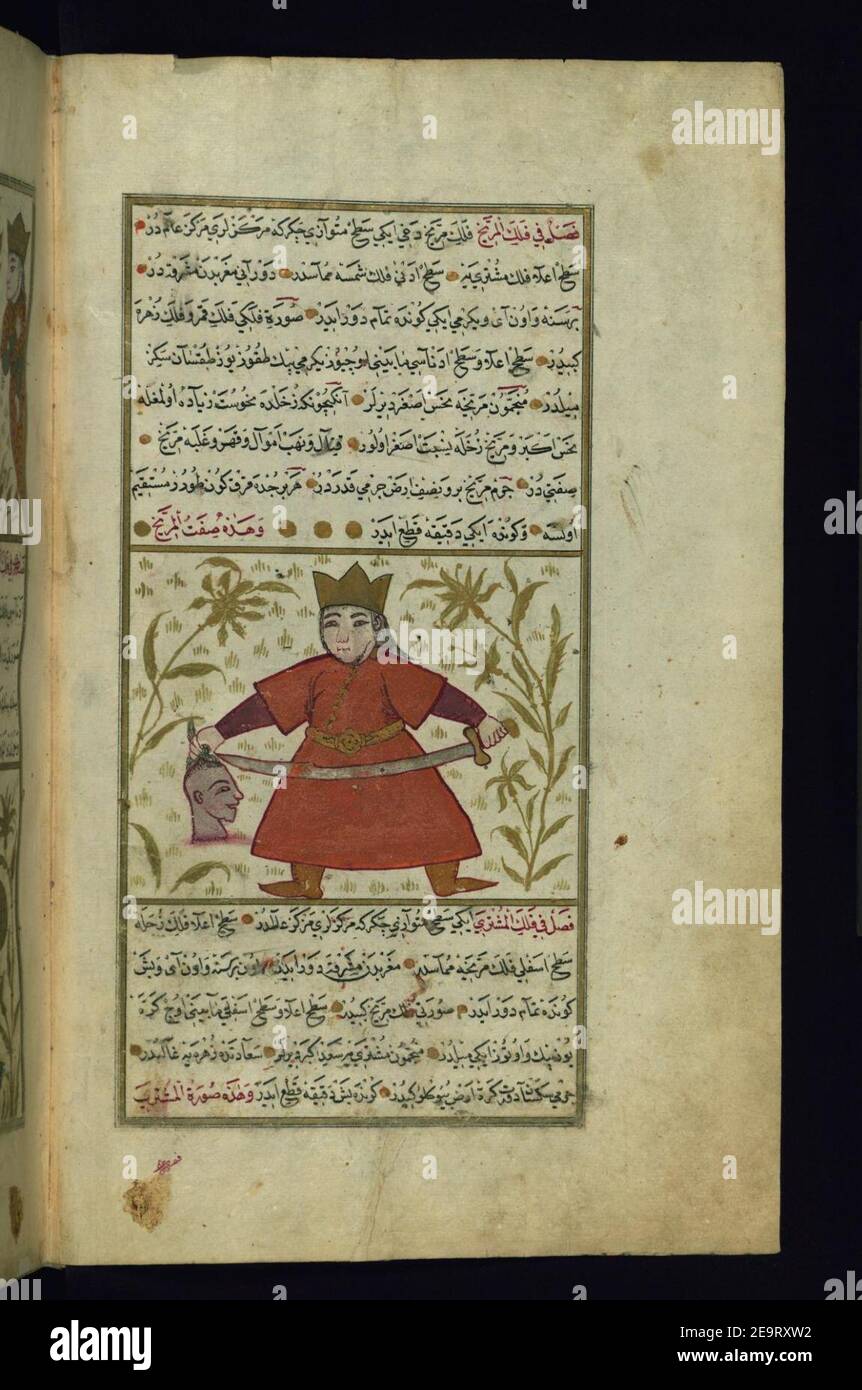 فصل في فلك المريخ فلك مريخ دخي ايكي سطح متوازي چكركه مركزلري مركز عالمدر
سطح اعلا فلك مشتري يه سطح ادني فلك شمسه مماسدر دوراني مغربدن مشرقه در
بر سنه و اون آي و يكرمي ايكي كونده تمام دور ايدر صورة فلكي فلك قمر و فلك زهره
كبيدر سطح اعلا و سطح ادناسي مابيني اوچيوز يكرمي بيك طقوز يوز طقسان سكز
ميلدر منجمون مريخه نحس اصغر ديرلر آنكيچونكه زحلده نحوست زياده اولمغله
نحس اكبر و مريخ زحله نسبت اصغر اولور قتال و نهب اموال و قهر و غلبه مريخ
صفتي در جرم مريخ بر و نصف ارض جرمي قدر در هر برجده قرق كون طورر مستقيم
اولسه و كونده ايكي دقيقه قطع ايدر وهذه صفت المريخ
فصل في فلك المشتري ايكي سطح متوازي چكركه مركزلري مركز عالمدر سطح اعلا فلك زحله
سطح اسفلي فلك مريخه مماسدر مغربدن مشرقه دور ايدر اون بر سنه و اون آي و بش
كونده تمام دور ايدر صورتي فلك مريخ كبيدر سطح اعلا و سطح اسفلي مابيني اوچ كره
يوز بيك و اوتوز ايكي ميلدر منجمون مشتري يه سعد اكبر ديرلر سعادتده زهره يه غالبدر
جرمي سكسان درت كرة ارض كبيدر كونده بش دقيقه قطع ايدر وهذه صورة المشتري
alamy
Image ID: 2E9RXW2
www.alamy.com